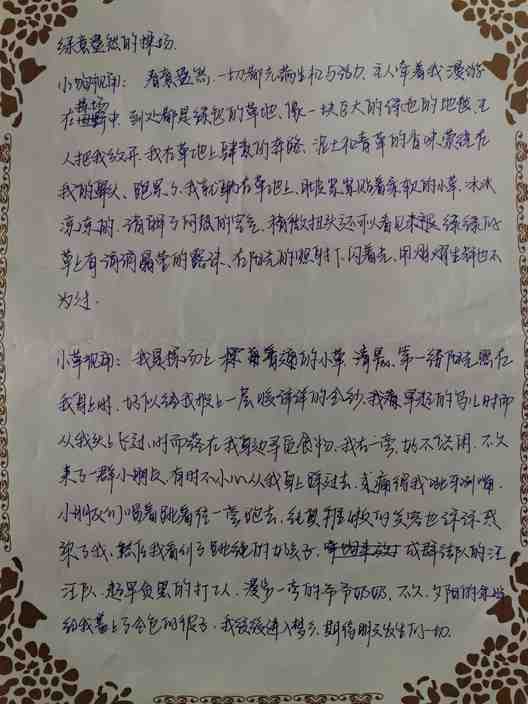 绿意盎然的操场
小狗视角：春意盎然，一切都充满生机与活力，主人牵着我漫游
在草场中，到处都是绿色的草地，像一块巨大的绿色的地毯，主
人把我放开，我在草地上肆意的奔跑，泥土和青草的香味萦绕在
我的鼻头，跑累了，我就趴在草地上，肚皮紧紧贴着柔软的小草，冰冰
凉凉的，消解了阿极的空气，稍微扭头还可以看见末根绿绿的
草上有滴滴晶莹的露珠，在阳光的照射下闪着光，用熠熠生辉也不
为过。
小草视角：我是操场上一棵普普通通的小草，清晨，第一缕阳光照在
我身上时，好似给我披上一层暖洋洋的金纱，我看早起的鸟儿时而
从我头上飞过，时而落在我身边寻觅食物，我在一旁，好不惬意，不久
来了一群小朋友，有时不小心从我身上踩过去，疼痛得我呲牙咧嘴，
小朋友们唱着跳着往一旁跑去，纯真无邪的笑容也深深感
染了我，然后我看到了跳绳的女孩子，成群结队的汪
汪队，起早贪黑的打工人，漫步一旁的爷爷奶奶，不久，夕阳的余晖
给我盖上了金色的被子，我缓缓进入梦乡，期待明天发生的一切。